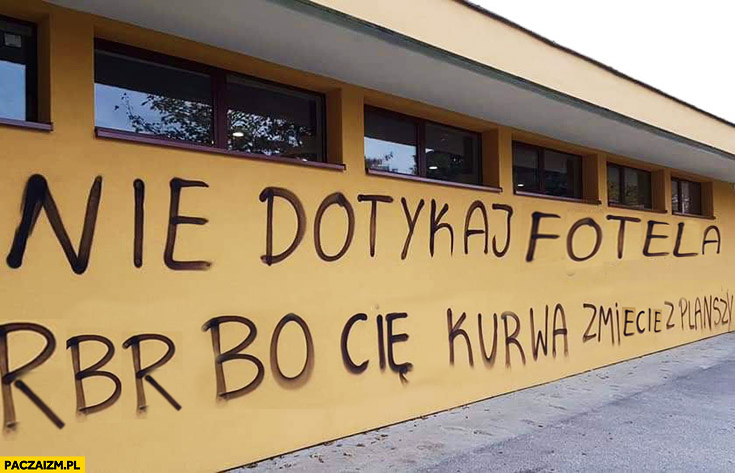 NIE DOTYKAJ FOTELA
RBR BO CIĘ KURWA ZMIECIE Z PLANSZY
PACZAIZM.PL